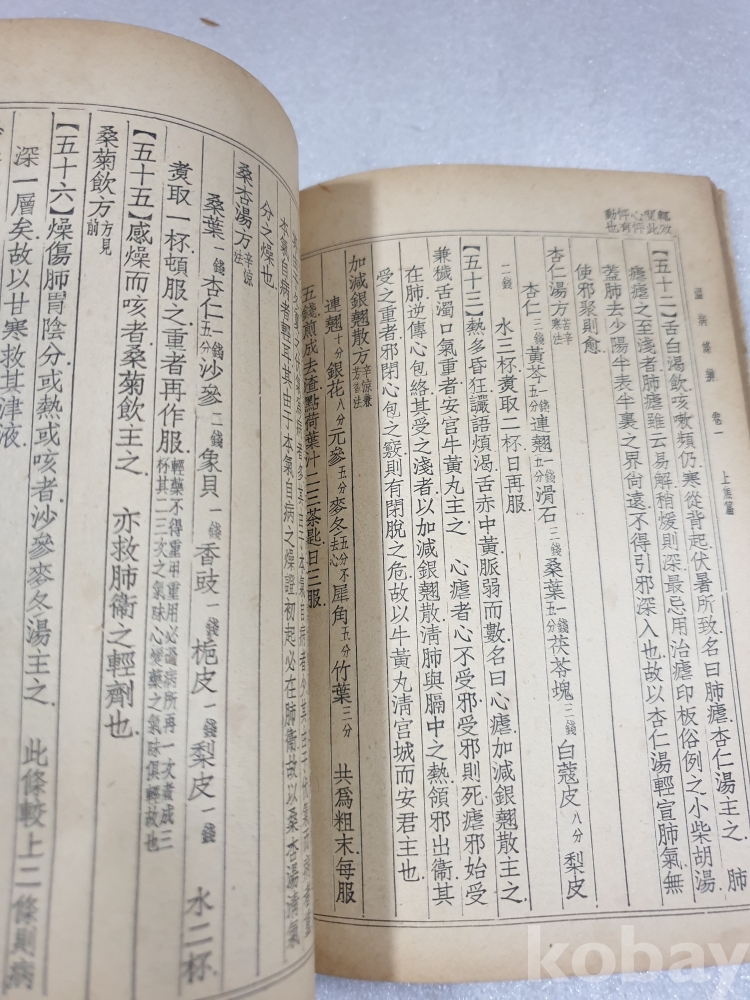 溫病條辨 卷一 上焦篇
【五十二】舌白渴飲咳嗽頻仍寒從背起伏暑所致名曰肺瘧杏仁湯主之 肺
瘧瘧之至淺者肺瘧雖云易解稍緩則深最忌用治瘧印板俗例之小柴胡湯
蓋肺去少陽半表半裏之界尚遠不得引邪深入也故以杏仁湯輕宣肺氣無
使邪聚則愈
杏仁湯方苦辛寒法
杏仁三錢黃芩一錢五分連翹一錢五分滑石三錢桑葉一錢五分茯苓塊三錢白蔻皮八分梨皮
二錢 水三杯煑取二杯日再服
【五十三】熱多昏狂譫語煩渴舌赤中黃脈弱而數名曰心瘧加減銀翹散主之
兼穢舌濁口氣重者安宮牛黃丸主之 心瘧者心不受邪受邪則死瘧邪始受
在肺逆傳心包絡其受之淺者以加減銀翹散清肺與膈中之熱領邪出衞其
受之重者邪閉心包之竅則有閉脫之危故以牛黃丸清宮城而安君主也
加減銀翹散方辛涼兼芳香法
連翹十分銀花八分元參五分麥冬五分不去心犀角五分竹葉三分 共爲粗末每服
五錢煎成去渣點荷葉汁二三茶匙日三服
本氣自病者輕宜其由于本氣自病之燥證初起必在肺衞故以桑杏湯淸氣
分之燥也
桑杏湯方辛涼法
桑葉一錢杏仁一錢五分沙參二錢象貝一錢香豉一錢梔皮一錢梨皮一錢 水二杯
煑取一杯頓服之重者再作服輕藥不得重用重用必過病所再一次煑成三杯其二三次之氣味必變藥之氣味俱輕故也
【五十五】感燥而咳者桑菊飮主之 亦救肺衞之輕劑也
桑菊飮方方見前
【五十六】燥傷肺胃陰分或熱或咳者沙參麥冬湯主之 此條較上二條則病
深一層矣故以甘寒救其津液
kobay